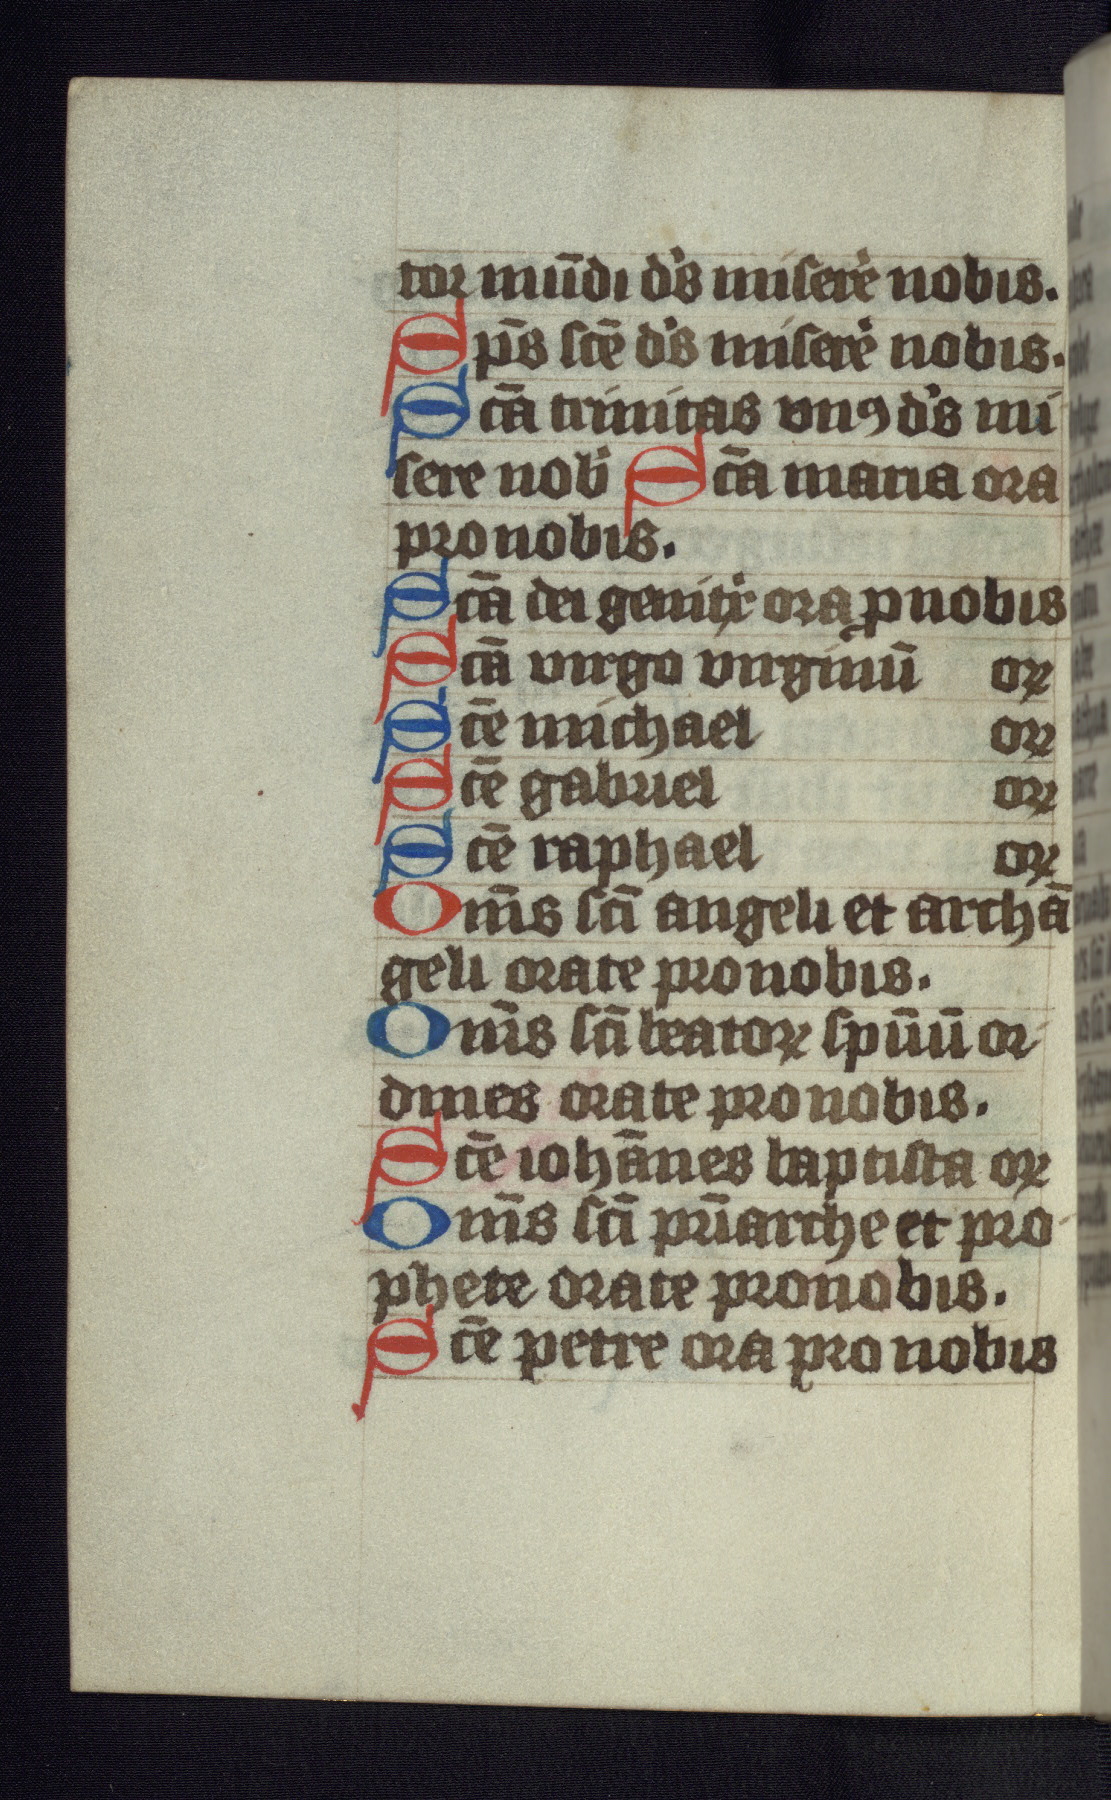 tor mūdi ds̓ miserē nobis.
Sps̄ sctē ds̓ miserē nobis.
Sctā trinitas vnꝯ ds̓ mi
sere nob̄ Sctā maria ora
pro nobis.
Sctā dei genitͥx ora ꝓ nobis
Sctā virgo virginū orꝛ
Sctē michael orꝛ
Sctē gabriel orꝛ
Sctē raphael orꝛ
Om̄s sctī angeli et archā
geli orate pro nobis.
Om̄s sctī beatoꝝ spūū or
dines orate pro nobis.
Sctē iohānes baptista orꝛ
Om̄s sctī pr̄iarche et pro
phete orate pro nobis.
Sctē petre ora pro nobis